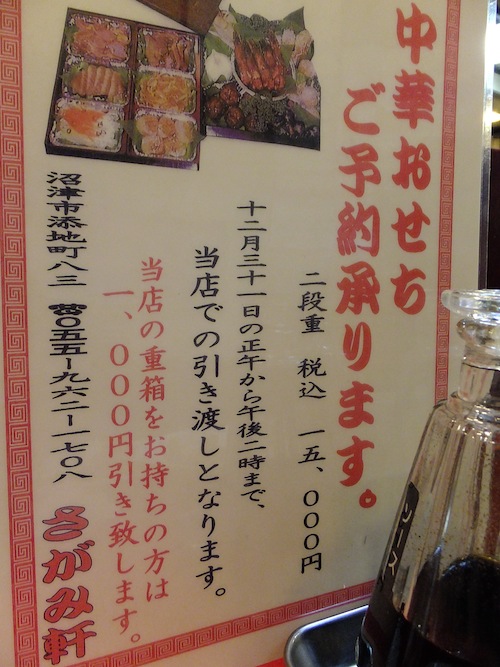 中華おせち
ご予約承ります。
二段重　税込　一五、〇〇〇円
十二月三十一日の正午から午後二時まで、
当店での引き渡しとなります。
当店の重箱をお持ちの方は
一、〇〇〇円引き致します。
沼津市添地町八三　☎〇五五ー九六二ー一七〇八
さがみ軒
ソース